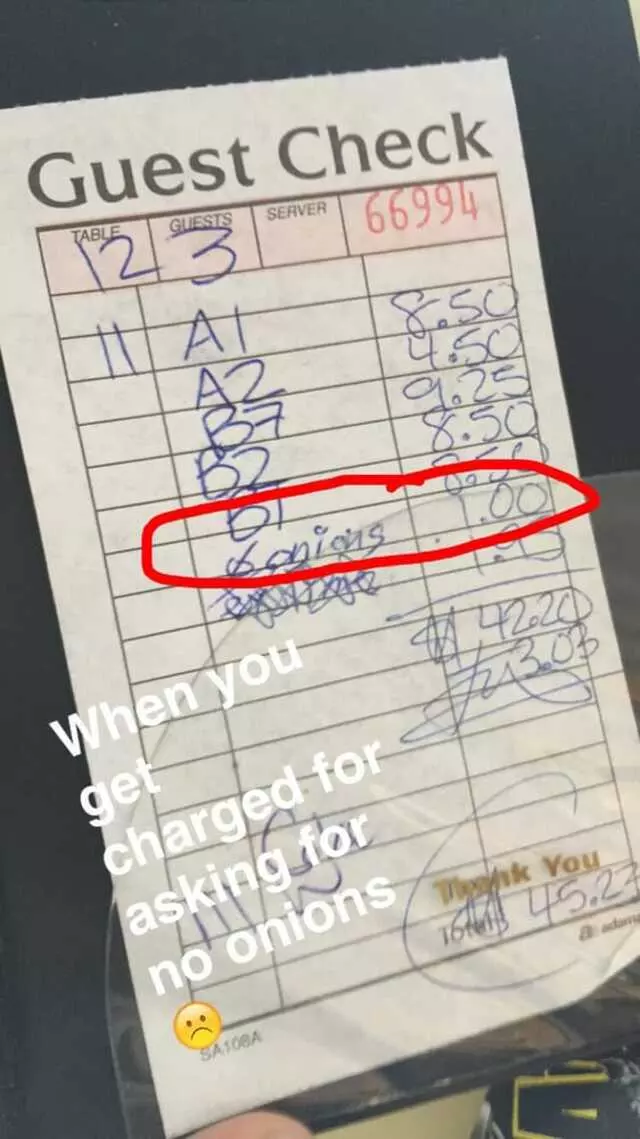 Guest Check
TABLE GUESTS SERVER 66994
12 3
8.50
11 A1 4.50
A2 9.25
B7 8.50
B2 8.50
B1 1.00
onions 1.95
$ 42.20
3.03
When you
get
charged for
asking for
no onions
Thank You
Total 45.23
SA108A